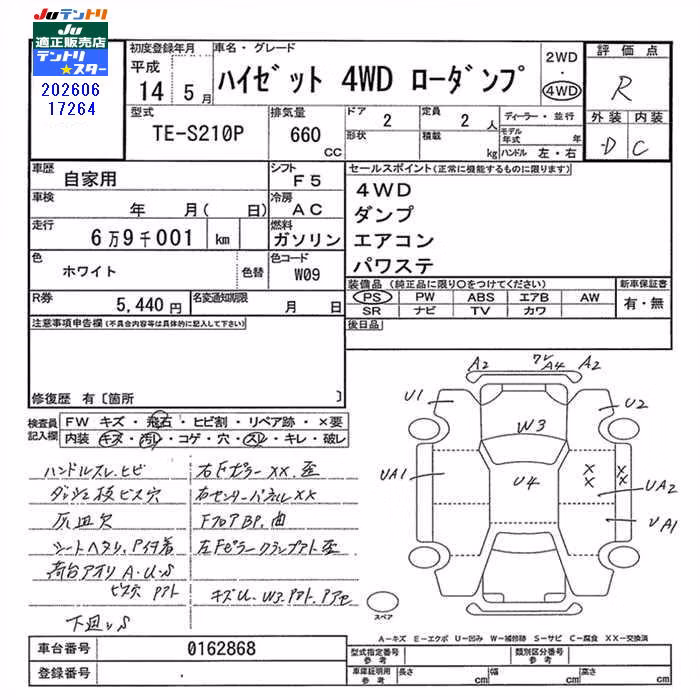 JUテントリ
JU
適正販売店
テントリ
★スター
202606
17264
初度登録年月
平成
14 5月
車名・グレード
ハイゼット 4WD ローダンプ
2WD
・
4WD
評価点
R
外装 内装
-D C
型式
TE-S210P
排気量
660
CC
ドア
2
定員
2 人
形状
積載
kg
ディーラー・並行
モデル年式 年
ハンドル 左・右
車歴
自家用
シフト
F5
車検
年 月( 日)
冷房
AC
走行
6万9千001 km
燃料
ガソリン
色
ホワイト
色替
色コード
W09
R券
5,440円
名変通知期限
月 日
セールスポイント(正常に機能するものに限ります)
4WD
ダンプ
エアコン
パワステ
装備品(純正品に限り○をつけてください)
PS PW ABS エアB AW
SR ナビ TV カワ
新車保証書
有・無
後日品
注意事項申告欄(不具合内容等は具体的に記入して下さい)
修復歴 有〔箇所 〕
検査員記入欄
FW キズ・飛石・ヒビ割・リペア跡・×要
内装 キズ・汚レ・コゲ・穴・スレ・キレ・破レ
ハンドルスレ.ヒビ
ダッシュ横ビス穴
灰皿欠
シートヘタリ.P付着
荷台アオリA・U・S
ビス穴 Pアト
下廻りS
右Fピラーxx.歪
右センターパネルxx
FフロアBP.曲
左Fピラークランプアト歪
キズU.W3.Pアト.Pアセ
A2
ワレ
A4
A2
U1
U2
W3
UA1
U4
x x
x x
UA2
UA1
スペア
A-キズ E-エクボ U-凹み W-補修跡 S-サビ C-腐食 XX-交換済
車台番号
0162868
登録番号
型式指定番号
参考
類別区分番号
参考
車庫証明用
参考
長さ cm
幅 cm
高さ cm